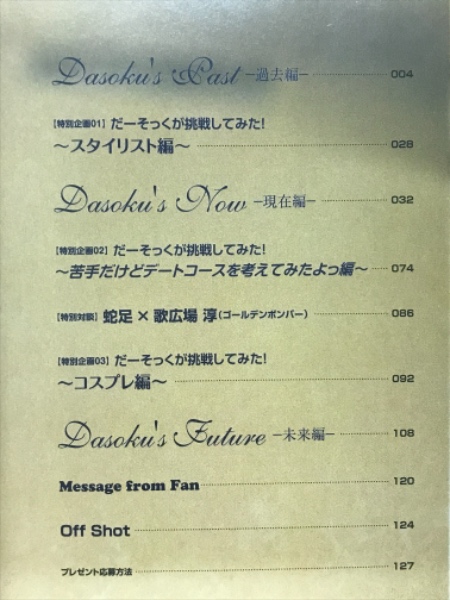 Dasoku's Past －過去編－ 004
【特別企画01】だーそっくが挑戦してみた!
～スタイリスト編～ 028
Dasoku's Now －現在編－ 032
【特別企画02】だーそっくが挑戦してみた!
～苦手だけどデートコースを考えてみたよっ編～ 074
【特別対談】蛇足 × 歌広場 淳(ゴールデンボンバー) 086
【特別企画03】だーそっくが挑戦してみた!
～コスプレ編～ 092
Dasoku's Future －未来編－ 108
Message from Fan 120
Off Shot 124
プレゼント応募方法 127